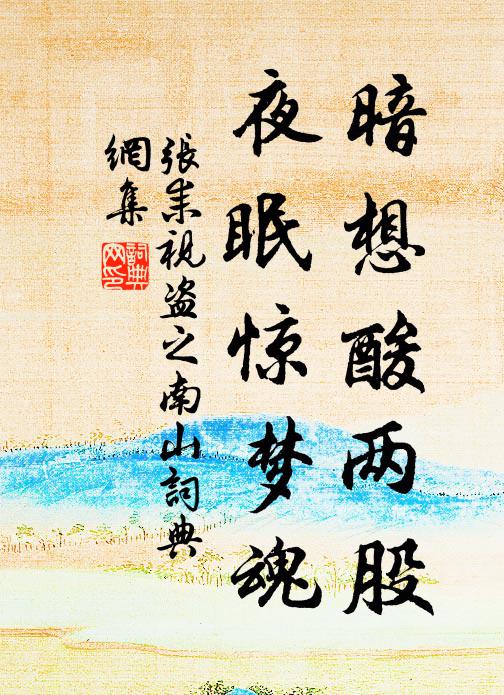 暗想酸两股
夜眠惊梦魂
張耒視盜之南山詞典
網集
詞典
网印